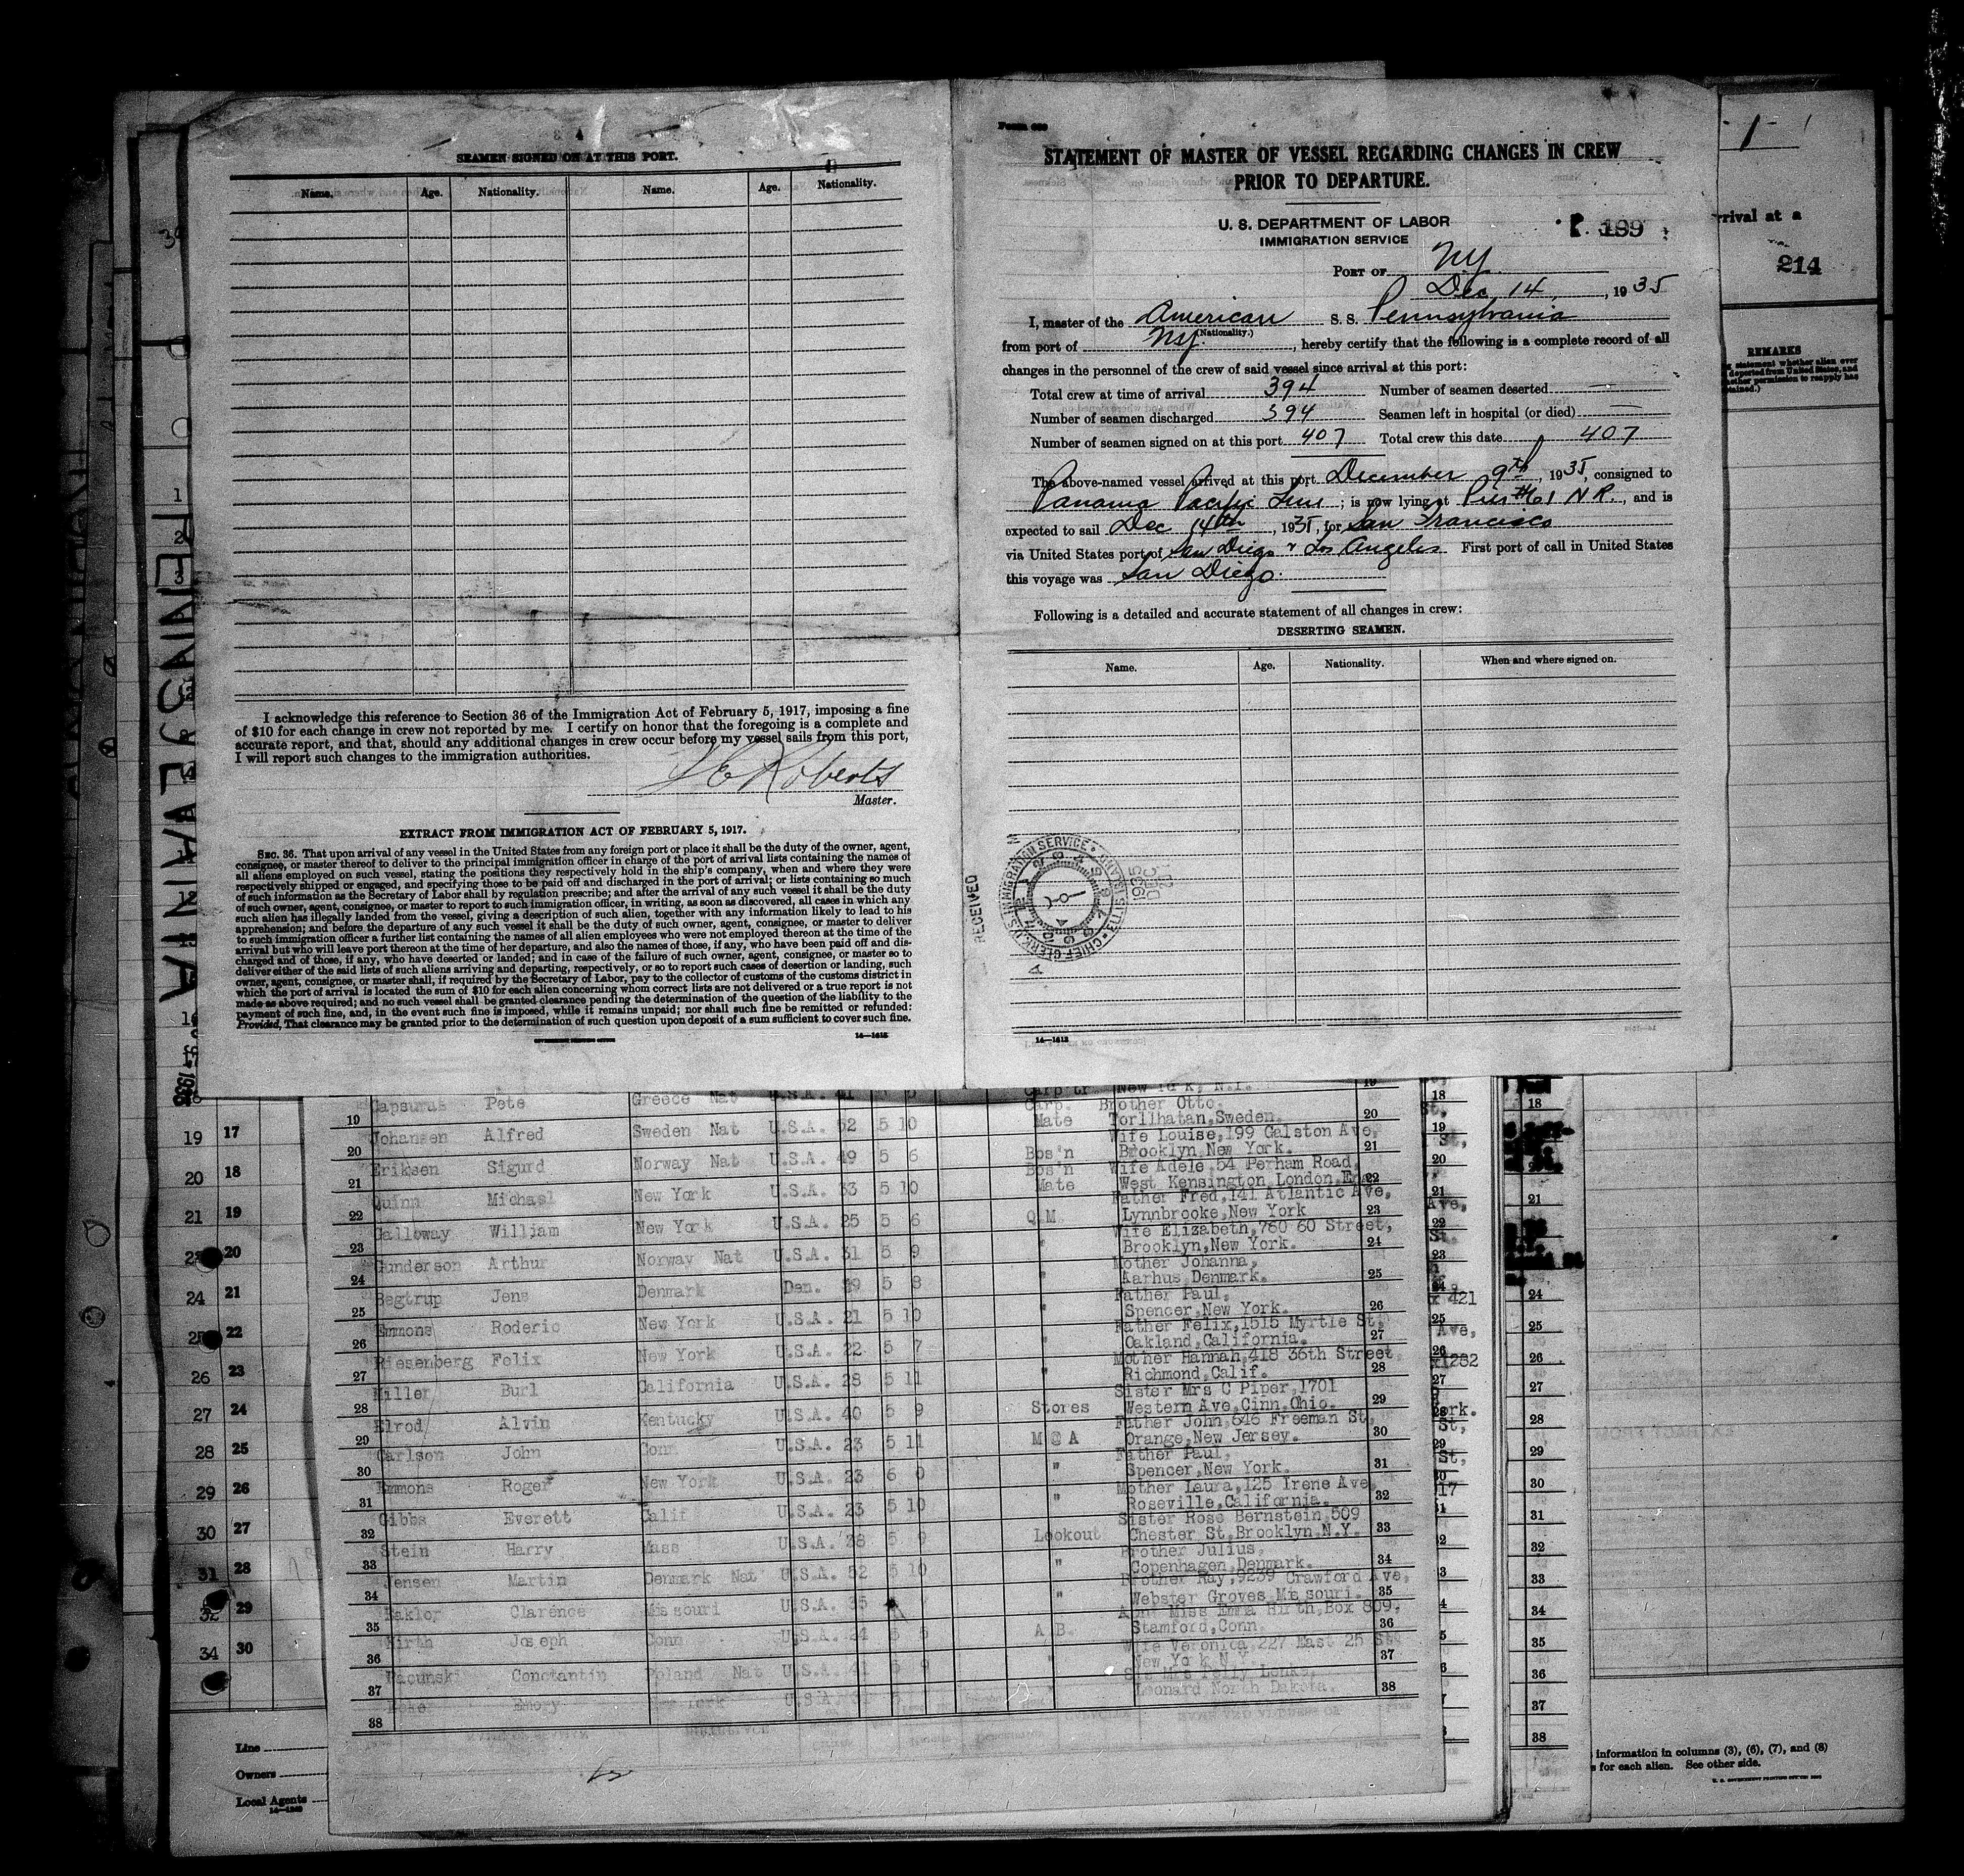 SEAMEN SIGNED ON AT THIS PORT.
Name. Age. Nationality. Name. Age. Nationality.
I acknowledge this reference to Section 36 of the Immigration Act of February 5, 1917, imposing a fine
of $10 for each change in crew not reported by me. I certify on honor that the foregoing is a complete and
accurate report, and that, should any additional changes in crew occur before my vessel sails from this port,
I will report such changes to the immigration authorities.
Roberts
Master.
EXTRACT FROM IMMIGRATION ACT OF FEBRUARY 5, 1917.
SEC. 36. That upon arrival of any vessel in the United States from any foreign port or place it shall be the duty of the owner, agent,
consignee, or master thereof to deliver to the principal immigration officer in charge of the port of arrival lists containing the names of
all aliens employed on such vessel, stating the positions they respectively hold in the ship's company, when and where they were
respectively shipped or engaged, and specifying those to be paid off and discharged in the port of arrival; or lists containing so much
of such information as the Secretary of Labor shall by regulation prescribe; and after the arrival of any such vessel it shall be the duty
of such owner, agent, consignee, or master to report to such immigration officer, in writing, as soon as discovered, all cases in which any
such alien has illegally landed from the vessel, giving a description of such alien, together with any information likely to lead to his
apprehension; and before the departure of any such vessel it shall be the duty of such owner, agent, consignee, or master to deliver
to such immigration officer a further list containing the names of all alien employees who were not employed thereon at the time of the
arrival but who will leave port thereon at the time of her departure, and also the names of those, if any, who have been paid off and dis-
charged and of those, if any, who have deserted or landed; and in case of the failure of such owner, agent, consignee, or master so to
deliver either of the said lists of such aliens arriving and departing, respectively, or so to report such cases of desertion or landing, such
owner, agent, consignee, or master shall, if required by the Secretary of Labor, pay to the collector of customs of the customs district in
which the port of arrival is located the sum of $10 for each alien concerning whom correct lists are not delivered or a true report is not
made as above required; and no such vessel shall be granted clearance pending the determination of the question of the liability to the
payment of such fine, and, in the event such fine is imposed, while it remains unpaid; nor shall such fine be remitted or refunded:
Provided, That clearance may be granted prior to the determination of such question upon deposit of a sum sufficient to cover such fine.
GOVERNMENT PRINTING OFFICE
STATEMENT OF MASTER OF VESSEL REGARDING CHANGES IN CREW
PRIOR TO DEPARTURE.
U. S. DEPARTMENT OF LABOR
IMMIGRATION SERVICE
189
PORT OF NY
Dec 14, 1935
I, master of the American S. S. Pennsylvania
(Nationality.)
from port of NY., hereby certify that the following is a complete record of all
changes in the personnel of the crew of said vessel since arrival at this port:
Total crew at time of arrival 394 Number of seamen deserted —
Number of seamen discharged 394 Seamen left in hospital (or died) —
Number of seamen signed on at this port 407 Total crew this date 407
The above-named vessel arrived at this port December 9th, 1935, consigned to
Panama Pacific Line; is now lying at Pier #61 N R., and is
expected to sail Dec 14th, 1935, for San Francisco
via United States port of San Diego & Los Angeles First port of call in United States
this voyage was San Diego.
Following is a detailed and accurate statement of all changes in crew:
DESERTING SEAMEN.
Name. Age. Nationality. When and where signed on.
RECEIVED
14—1613
1
rrival at a
214
REMARKS
PENNSYLVANIA
Capsuras Pete Greece Nat U.S.A. 41 Carp'tr New York, N.Y. 19
19 Johansen Alfred Sweden Nat U.S.A. 52 5 10 Carp. Mate Brother Otto, Torllhatan,Sweden. 20
20 Eriksen Sigurd Norway Nat U.S.A. 49 5 6 Bos'n Wife Louise,199 Galston Ave, Brooklyn,New York. 21
21 Quinn Michael New York U.S.A. 33 5 10 Bos'n Mate Wife Adele,54 Perham Road, West Kensington,London,Eng. 22
22 Galloway William New York U.S.A. 25 5 6 Q M Father Fred,141 Atlantic Ave, Lynnbrooke,New York 23
23 Gunderson Arthur Norway Nat U.S.A. 31 5 9 " Wife Elizabeth,760 60 Street, Brooklyn,New York. 24
24 Begtrup Jens Denmark Den. 29 5 8 " Mother Johanna, Aarhus Denmark. 25
25 Emmons Roderic New York U.S.A. 21 5 10 " Father Paul, Spencer,New York. 26
26 Riesenberg Felix New York U.S.A. 22 5 7 " Father Felix,1515 Myrtle St, Oakland,California. 27
27 Miller Burl California U.S.A. 28 5 11 " Mother Hannah,418 36th Street, Richmond,Calif. 28
28 Elrod Alvin Kentucky U.S.A. 40 5 9 Stores Sister Mrs C Piper,1701 Western Ave,Cinn,Ohio. 29
29 Carlson John Conn U.S.A. 23 5 11 M @ A Father John,646 Freeman St, Orange,New Jersey. 30
30 Emmons Roger New York U.S.A. 23 6 0 " Father Paul, Spencer,New York. 31
31 Gibbs Everett Calif U.S.A. 23 5 10 " Mother Laura,125 Irene Ave, Roseville,California. 32
32 Stein Harry Mass U.S.A. 28 5 9 Lookout Sister Rose Bernstein,509 Chester St,Brooklyn,N.Y. 33
33 Jensen Martin Denmark Nat U.S.A. 52 5 10 " Brother Julius, Copenhagen,Denmark. 34
34 Clarence Missouri U.S.A. 35 " Brother Ray,9239 Crawford Ave, Webster Groves,Missouri. 35
35 Hirth Joseph Conn U.S.A. 24 5 5 A B. Aunt Miss Emma Hirth,Box 809, Stamford,Conn. 36
36 Constantin Poland Nat U.S.A. 41 5 9 " Wife Veronica,227 East 25 St. New York N.Y. 37
37 Emory U.S.A. Leonard North Dakota. 38
38
Line
Owners
Local Agents
information in columns (3), (6), (7), and (8)
s for each alien. See other side.